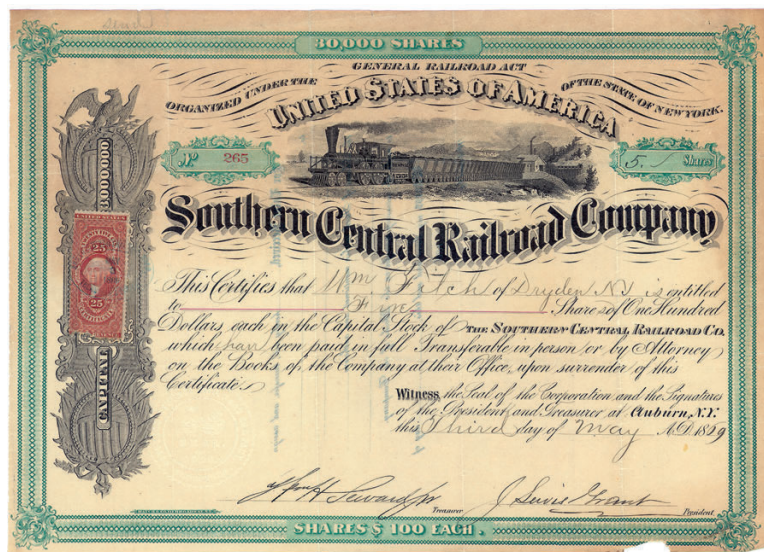 30,000 SHARES
GENERAL RAILROAD ACT
ORGANIZED UNDER THE OF THE STATE OF NEW YORK.
UNITED STATES OF AMERICA
No. 265
5 Shares
Southern Central Railroad Company
CAPITAL 3,000,000
UNITED STATES
25
25
This Certifies that Wm Fitch of Dryden NY is entitled
to Five Shares of One Hundred
Dollars each in the Capital Stock of THE SOUTHERN CENTRAL RAILROAD CO.
which have been paid in full Transferable in person or by Attorney
on the Books of the Company at their Office, upon surrender of this
Certificate.
Witness, the Seal of the Corporation and the Signatures
of the President and Treasurer at Auburn, N.Y.
this Third day of May A.D. 1869
Wm H Seward Jr Treasurer
J Lewis Grant President
SHARES $ 100 EACH.